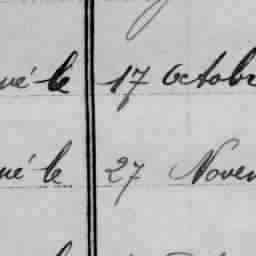 né le 17 Octob
né le 27 Novem